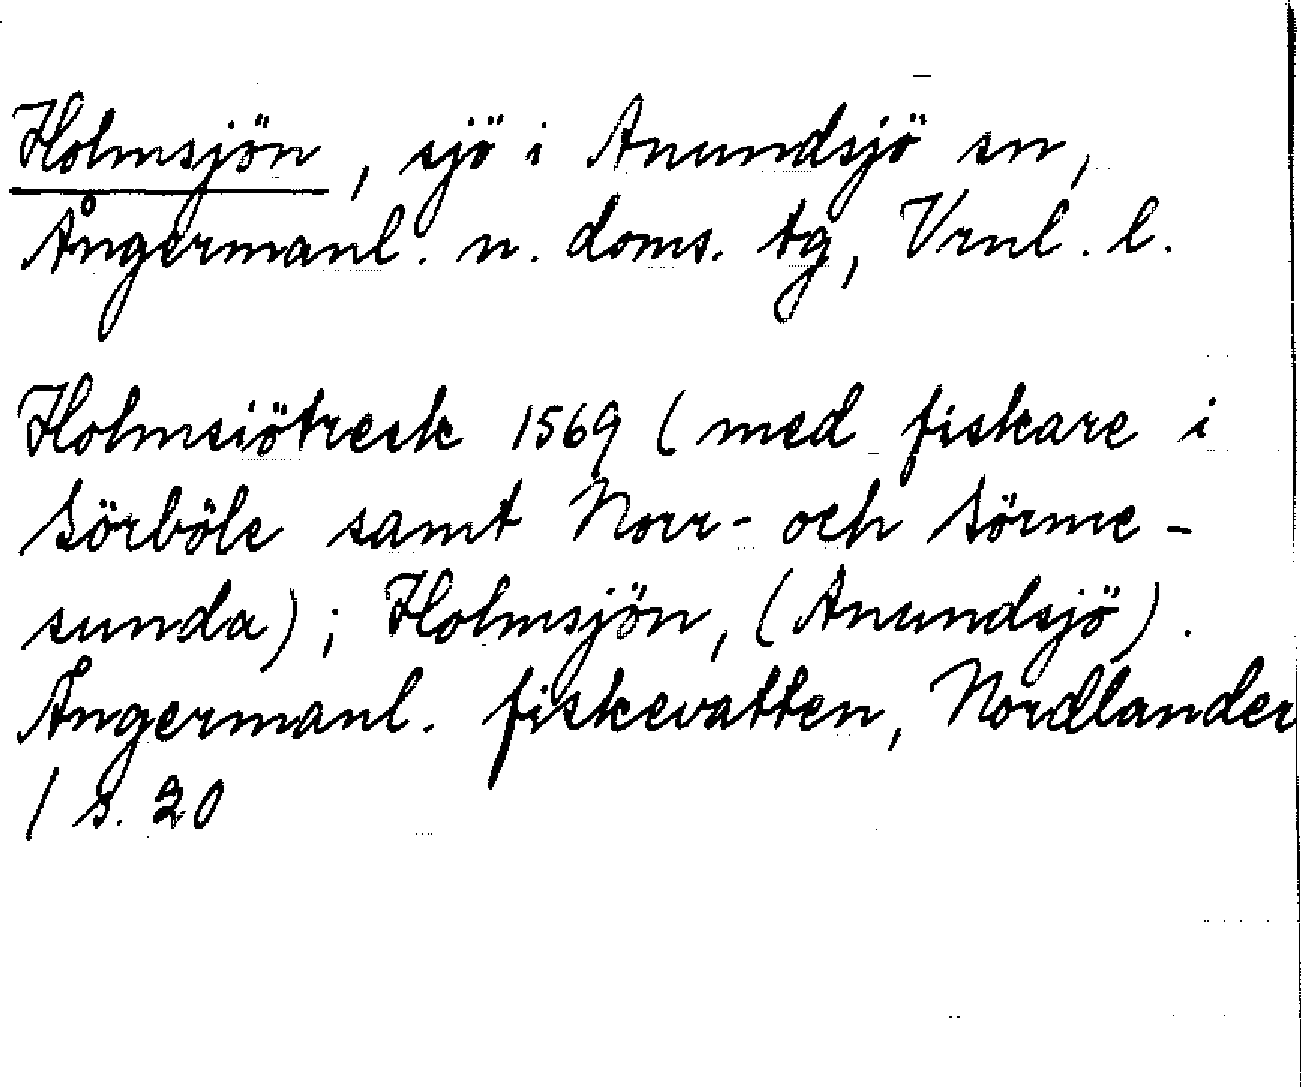 Holmsjön, sjö i Anundsjö sn,
Ångermanl. n. doms. tg, Vrnl. l.
Holmsiötresk 1569 (med fiskare i
Sörböle samt Norr- och Sörme-
sunda); Holmsjön, (Anundsjö).
Ångermanl. fiskevatten, Nordlander
1 s. 20